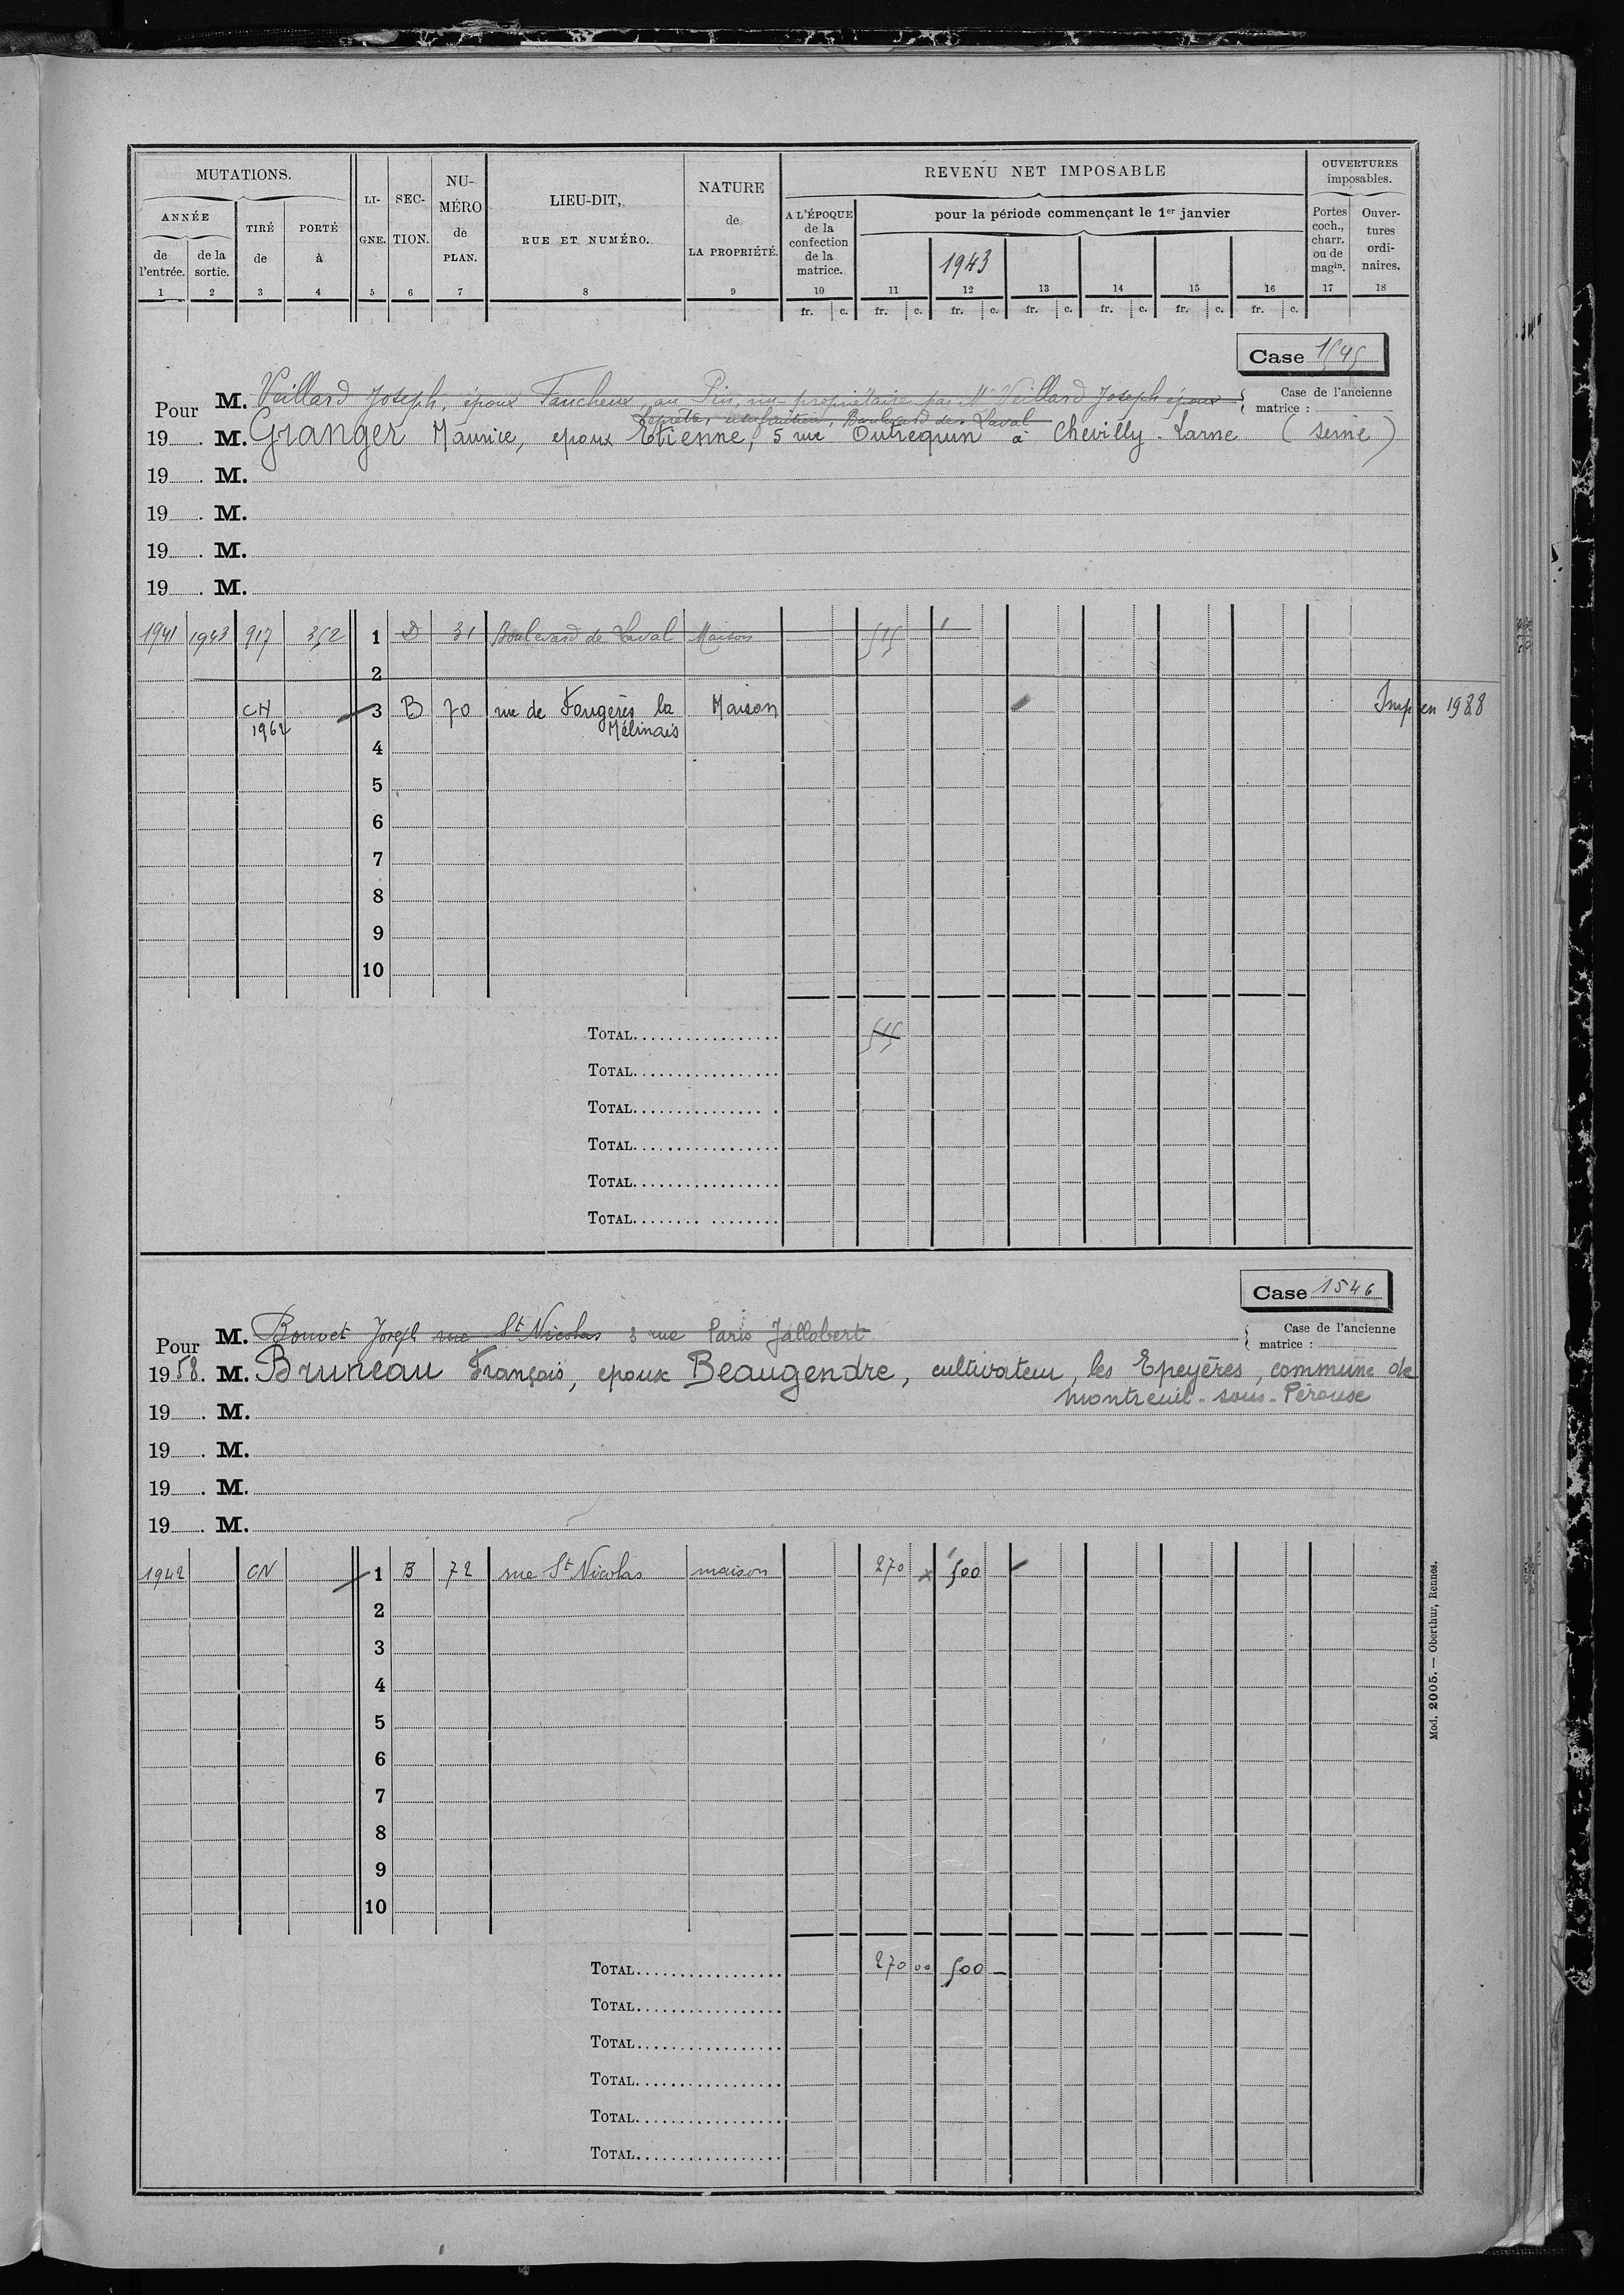 MUTATIONS.
ANNÉE
de l'entrée.
de la sortie.
TIRÉ de
PORTÉ à
LI-GNE.
SEC-TION.
NU-MÉRO de PLAN.
LIEU-DIT,
RUE ET NUMÉRO.
NATURE de LA PROPRIÉTÉ.
REVENU NET IMPOSABLE
A L'ÉPOQUE de la confection de la matrice.
pour la période commençant le 1er janvier
1943
OUVERTURES imposables.
Portes coch., charr. ou de magin.
Ouver-tures ordi-naires.
1 2 3 4 5 6 7 8 9 10 11 12 13 14 15 16 17 18
fr. c. fr. c. fr. c. fr. c. fr. c. fr. c. fr. c.
Case 1545
Pour M. Veillard Joseph, époux Faucheux, au Pin, nu-propriétaire par Mr Veillard Joseph époux
Case de l'ancienne matrice :
usufruitier, Boulevard de Laval
19 . M. Granger Maurice, epoux Etienne, 5 rue Outrequin à Chevilly-Larue (seine)
19 . M.
19 . M.
19 . M.
19 . M.
1941 1943 917 352 1 D 31 Boulevard de Laval Maison 515
2
CN 1962 3 B 70 rue de Fougères la Mélinais Maison Imp en 1988
4
5
6
7
8
9
10
TOTAL 515
TOTAL
TOTAL
TOTAL
TOTAL
TOTAL
Case 1546
Pour M. Bouvet Joseph rue St Nicolas 3 rue Paris Jallobert
Case de l'ancienne matrice :
1958. M. Bruneau François, epoux Beaugendre, cultivateur, les Epeyères, commune de
montreuil-sous-Pérouse
19 . M.
19 . M.
19 . M.
19 . M.
1942 CN 1 B 72 rue St Nicolas maison 270 x 500
2
3
4
5
6
7
8
9
10
TOTAL 270 00 500 —
TOTAL
TOTAL
TOTAL
TOTAL
TOTAL
Mod. 2005. — Oberthur, Rennes.